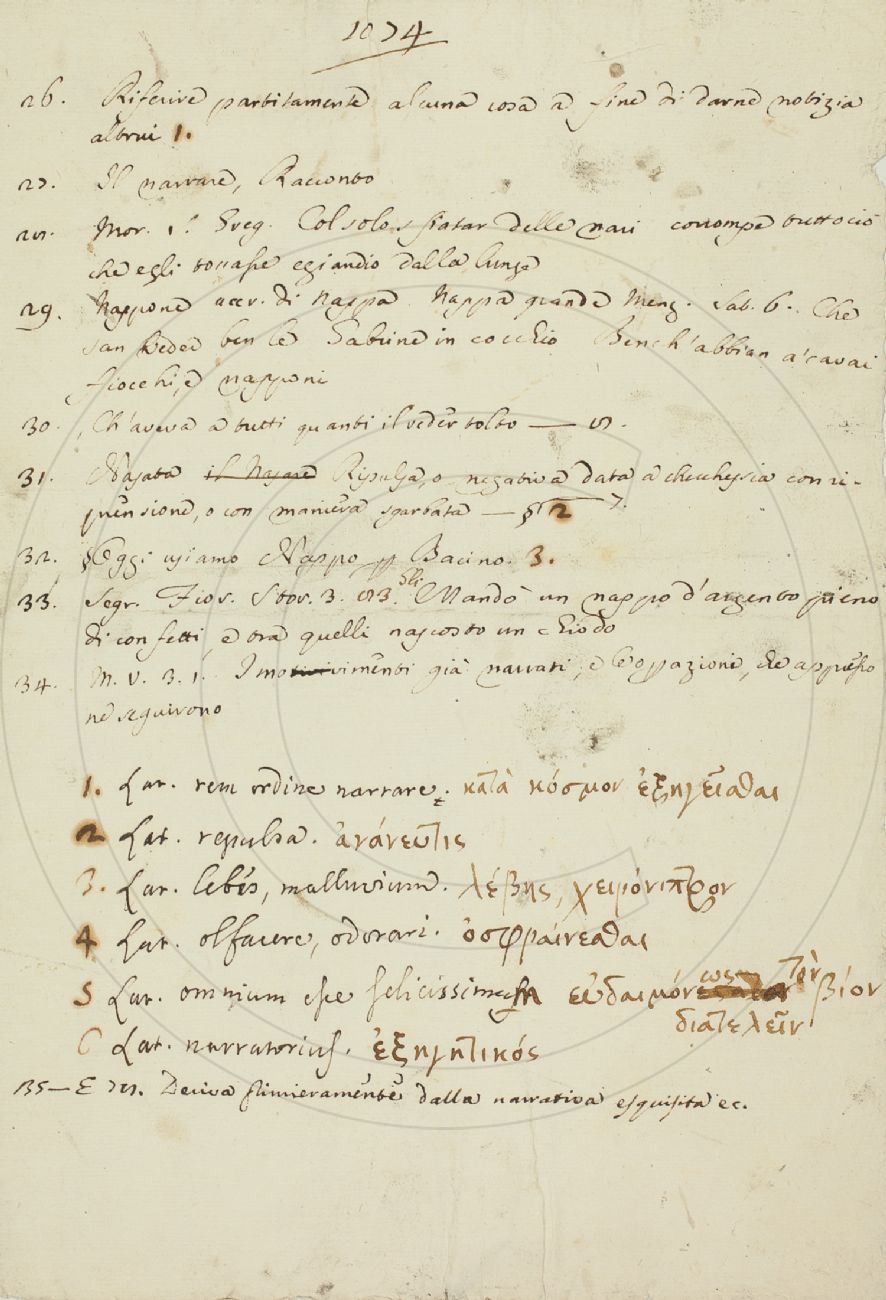 1074
26. Riferire partitamente alcuna cosa a fine di darne notizia
altrui 1.
27. Il narrare, Racconto
28. Mor. S. Greg. Col solo sfiatar delle nari corrompe tutto ciò
che egli toccasse eziandio dalla lunge
29. Nappone accr. di Nappa Nappa grande Menz. sat. 6. Che
san veder ben le Sabine in cocchio Bench'abbian a' cavai
fiocchi, e napponi
30. Ch'aveva a tutti quanti il veder tolto — 8.
31. Nasata il Nasare Ripulsa, o negativa data a checchessia con ri-
prensione, o con maniera sgarbata — § 2 7.
32. § Oggi usiamo Nappo pp Bacino. 3.
33. Segr. Fior. Stor. 3. 83. gli Mandò un nappo d'argento pieno
di confetti, e tra quelli nascosto un chiodo
34. M. V. 3. 1. I movimenti già narrati, e l'oppazione, che appresso
ne seguirono
1. Lat. rem ordine narrare. κατὰ κόσμον ἐξηγεῖσθαι
2 Lat. repulsa. ἀνάνευσις
3. Lat. lebes, malluvium. λέβης, χειρόνιπτρον
4 Lat. olfacere, odorari. ὀσφραίνεσθαι
5 Lat. omnium esse felicissimum εὐδαιμόνως τὸν βίον
διατελεῖν
6 Lat. narratorius. ἐξηγητικός
35 — E 78. Deriva primieramente dalla narrativa esquisita ec.